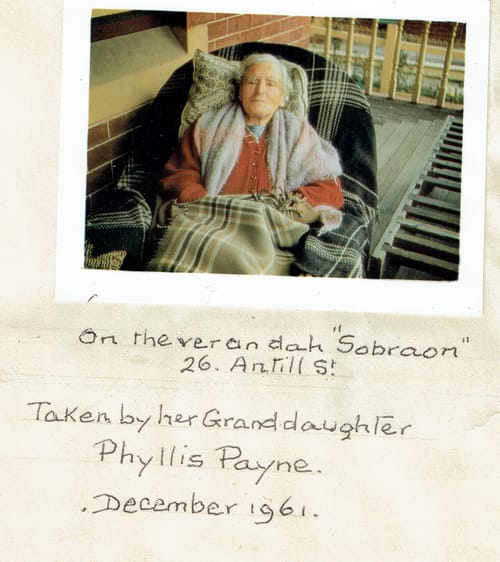 On the verandah "Sobraon"
26. Antill St
Taken by her Granddaughter
Phyllis Payne.
. December 1961.